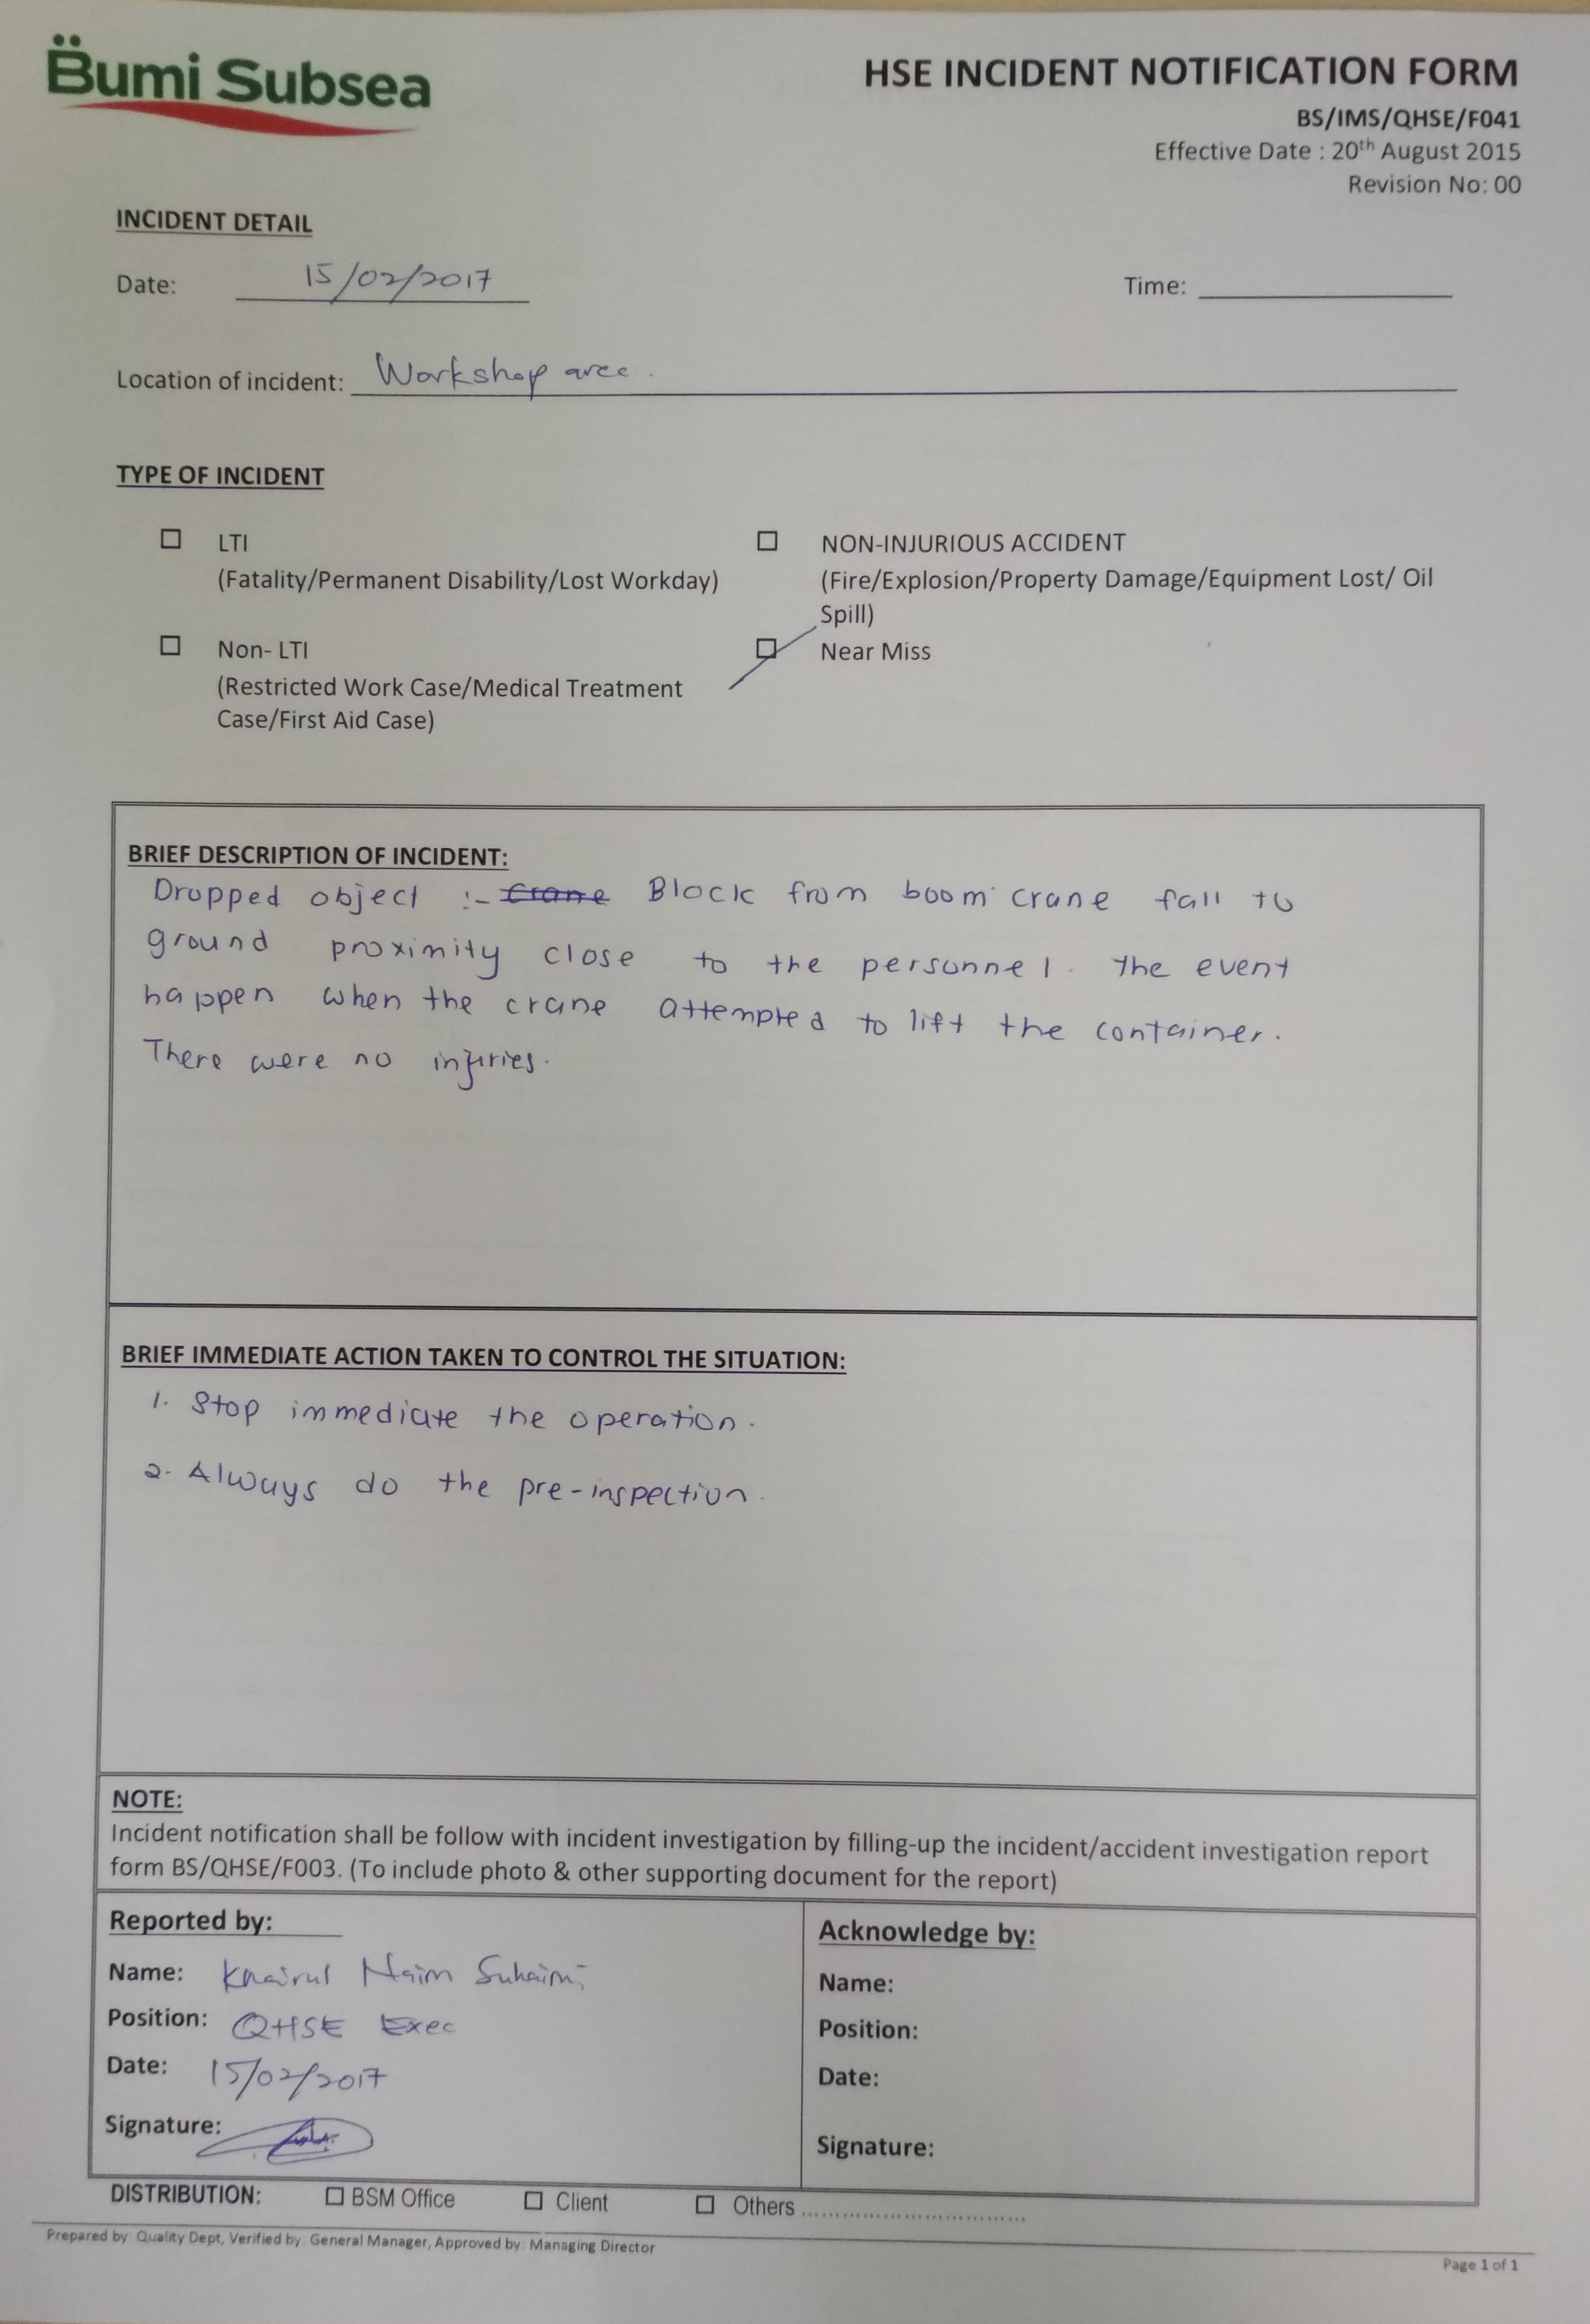 Bumi Subsea
HSE INCIDENT NOTIFICATION FORM
BS/IMS/QHSE/F041
Effective Date : 20th August 2015
Revision No: 00
INCIDENT DETAIL
Date: 15/02/2017 Time:
Location of incident: Workshop area.
TYPE OF INCIDENT
☐ LTI
(Fatality/Permanent Disability/Lost Workday)
☐ NON-INJURIOUS ACCIDENT
(Fire/Explosion/Property Damage/Equipment Lost/ Oil
Spill)
☐ Non- LTI
(Restricted Work Case/Medical Treatment
Case/First Aid Case)
☑ Near Miss
BRIEF DESCRIPTION OF INCIDENT:
Dropped object :- Crane Block from boom crane fall to
ground proximity close to the personnel. The event
happen when the crane attempted to lift the container.
There were no injuries.
BRIEF IMMEDIATE ACTION TAKEN TO CONTROL THE SITUATION:
1. Stop immediate the operation.
2. Always do the pre-inspection.
NOTE:
Incident notification shall be follow with incident investigation by filling-up the incident/accident investigation report
form BS/QHSE/F003. (To include photo & other supporting document for the report)
Reported by:
Name: Khairul Naim Suhaimi
Position: QHSE Exec
Date: 15/02/2017
Signature:
Acknowledge by:
Name:
Position:
Date:
Signature:
DISTRIBUTION: ☐ BSM Office ☐ Client ☐ Others ................................
Prepared by: Quality Dept, Verified by: General Manager, Approved by: Managing Director
Page 1 of 1